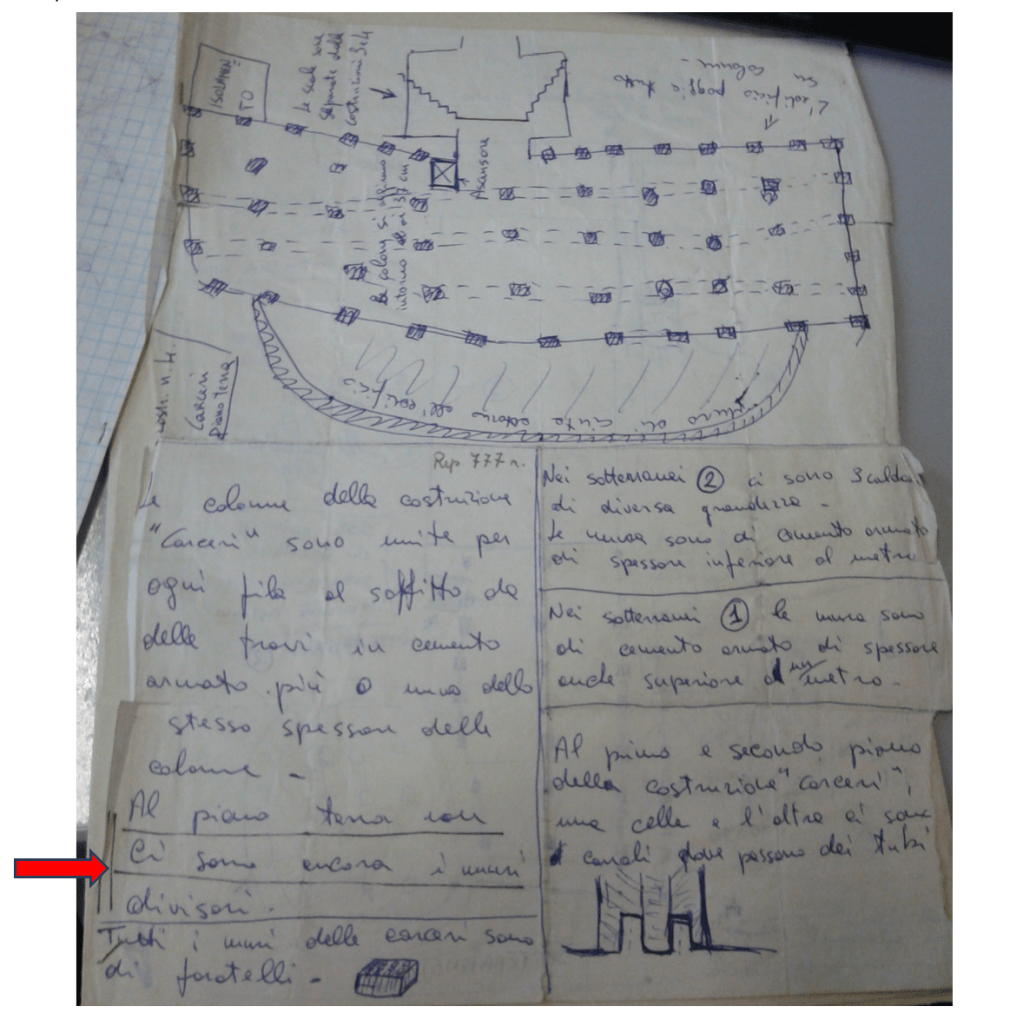 ISOLAMEN
TO
Le scale sono
separate dalle
costruzioni 3 e 4
L'edificio poggia tutto
su colonne -
Ascensore
Le colonne si aprono
intorno ai 37 cm
costr. n. 4.
Carceri
Piano terra
Muro di cinta esterno all'edificio
Rep 777 n.
Le colonne della costruzione
"Carceri" sono unite per
ogni fila al soffitto da
delle travi in cemento
armato più o meno dello
stesso spessore delle
colonne -
Al piano terra non
Ci sono ancora i muri
divisori.
Tutti i muri delle carceri sono
di foratelli -
Nei sotterranei 2 ci sono 3 caldaie
di diversa grandezza -
Le mura sono di cemento armato
di spessore inferiore al metro
Nei sotterranei 1 le mura sono
di cemento armato di spessore
anche superiore al metro -
Al primo e secondo piano
della costruzione "carceri",
una cella e l'altra ci sono
canali dove passano dei tubi